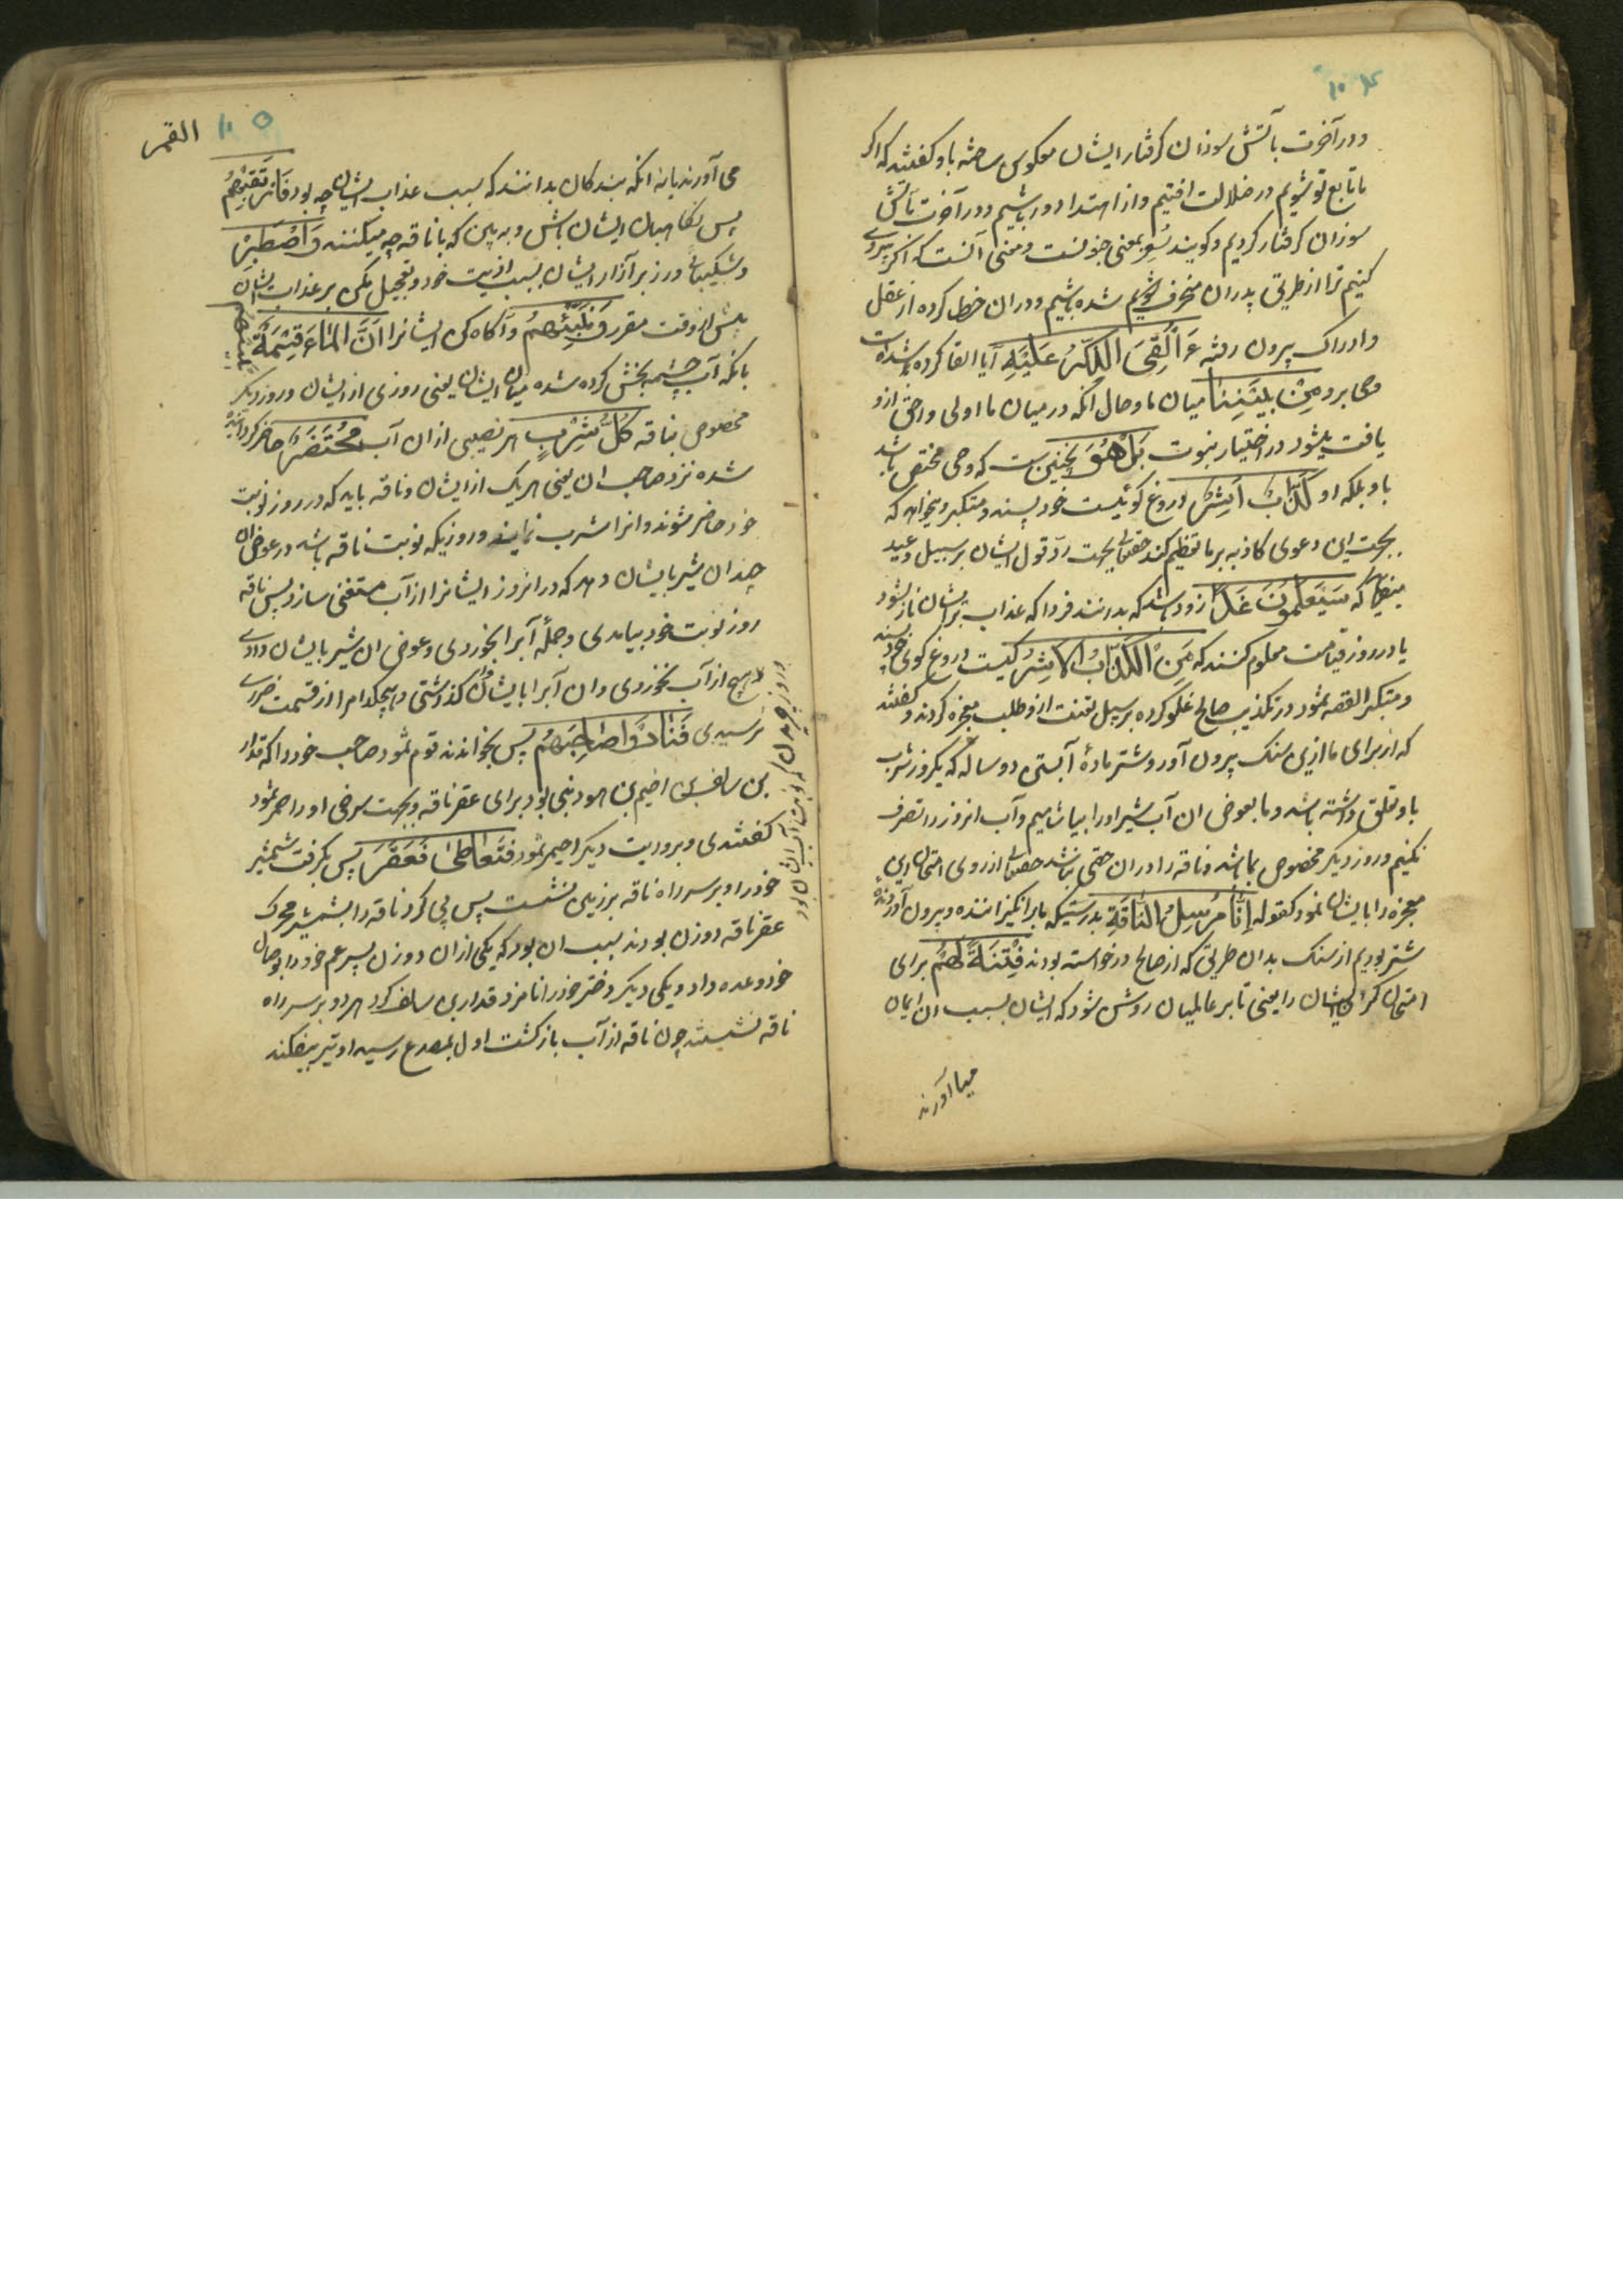 ۱۰۴
و در آخرت بآتش سوزان کرفتار ایشان معکوس ساخته باو کفتند که اکر
ما تابع تو شویم در ضلالت افتیم و از اهتدا دور باشیم و در آخرت بآتش
سوزان کرفتار کردیم و کویند سُعر بمعنی جنونست و معنی آنست که اکر پیروی
کنیم ترا از طریق پدران منحرف شده باشیم و دران خطا کرده از عقل
و ادراک بیرون رفته ءَاُلْقِیَ الذِّکْرُ عَلَیْهِ آیا القا کرده شده است
وحی برو مِنْ بَیْنِنَا میان ما و حال آنکه در میان ما اولی و احق ازو
یافت میشود در اختیار نبوت بَلْ هُوَ نچنین ست که وحی مختص باشد
باو بلکه او کَذَّابٌ اَشِرٌ دروغ کوئیست خود پسند و متکبر و میخواهد که
بجهت این دعوی کاذبه بر ما تعظم کند حقتعالی بجهت رد قول ایشان بر سبیل وعید
میفرماید که سَیَعْلَمُونَ غَدًا زود باشد که بدانند فردا که عذاب بر ایشان نازل شود
یا در روز قیامت معلوم کنند که مَنِ الْکَذَّابُ الْاَشِرُ کیست دروغ کوی خود پسند
و متکبر القصه ثمود در تکذیب صالح غلو کرده بر سبیل تعنت ازو طلب معجزه کردند و کفتند
که از برای ما ازین سنک بیرون آور و شتر مادهٔ آبستن دو ساله که یکروز شرب
باو تعلق داشته باشد و ما بعوض ان آب شیر او را بیاشامیم و آب انروز را تصرف
نکنیم و روز دیکر مخصوص بما باشد و ناقه را دران حقی نباشد حقتعالی از روی امتحان این
معجزه را بایشان نمود کقوله اِنَّا مُرْسِلُوا النَّاقَةِ بدرستیکه ما برانکیزاننده و بیرون آورنده
شتر بودیم از سنک بدان طریق که از صالح درخواسته بودند فِتْنَةً لَهُمْ برای
امتحان کردن ایشان را یعنی تا بر عالمیان روشن شود که ایشان بسبب ان ایمان
میا آورند
۱۰۵ القمر
می آورند یا نه انکه بندکان بدانند که سبب عذاب ایشان چه بود فَارْتَقِبْهُمْ
پس نکاهبان ایشان باش و به بین که با ناقه چه میکنند وَاصْطَبِرْ
و شکیبائی ورز بر آزار ایشان بسبب اذیت خود و تعجیل مکن بر عذاب ایشان
پیش از وقت مقرر وَنَبِّئْهُمْ و آکاه کن ایشانرا اَنَّ الْمَاءَ قِسْمَةٌ بَیْنَهُمْ
بانکه آب چشمه بخش کرده شده میان ایشان یعنی روزی از ایشان و روز دیکر
مخصوص بناقه کُلُّ شِرْبٍ هر نصیبی از ان آب مُحْتَضَرٌ حاضر کردانیده
شده نزد صاحب ان یعنی هر یک از ایشان و ناقه باید که در روز نوبت
خود حاضر شوند و انرا شرب نمایند و روزیکه نوبت ناقه باشد در عوض ان
چندان شیر بایشان دهد که در انروز ایشانرا از آب مستغنی سازد پس ناقه
روز نوبت خود بیامدی و جملهٔ آبرا بخوردی و عوض ان شیر بایشان دادی
و روز دیکر که نوبت آب ایشان بود
هیچ از آب نخوردی و ان آبرا بایشان کذاشتی و هیچکدام را از قسمت ضرری
نرسیدی فَنَادَوْا صَاحِبَهُمْ پس بخواندند قوم ثمود صاحب خود را که قدار
بن سالف بن اضیم بن هود نبی بود برای عقر ناقه و بجهت سرخی او را احمر ثمود
کفتندی و بروایت دیکر احیمر ثمود فَتَعَاطَیٰ فَعَقَرَ پس بکرفت شمشیر
خود را و بر سر راه ناقه بر زمین نشست پس پی کرد ناقه را بشمشیر محرک
عقر ناقه دو زن بودند بسبب ان بود که یکی از ان دو زن پسر عم خود را بوصال
خود وعده داد و یکی دیکر دختر خود را نامزد قدار بن سالف کرد هر دو بر سر راه
ناقه نشستند چون ناقه از آب باز کشت اول بمصدع رسید او تیر بیفکند